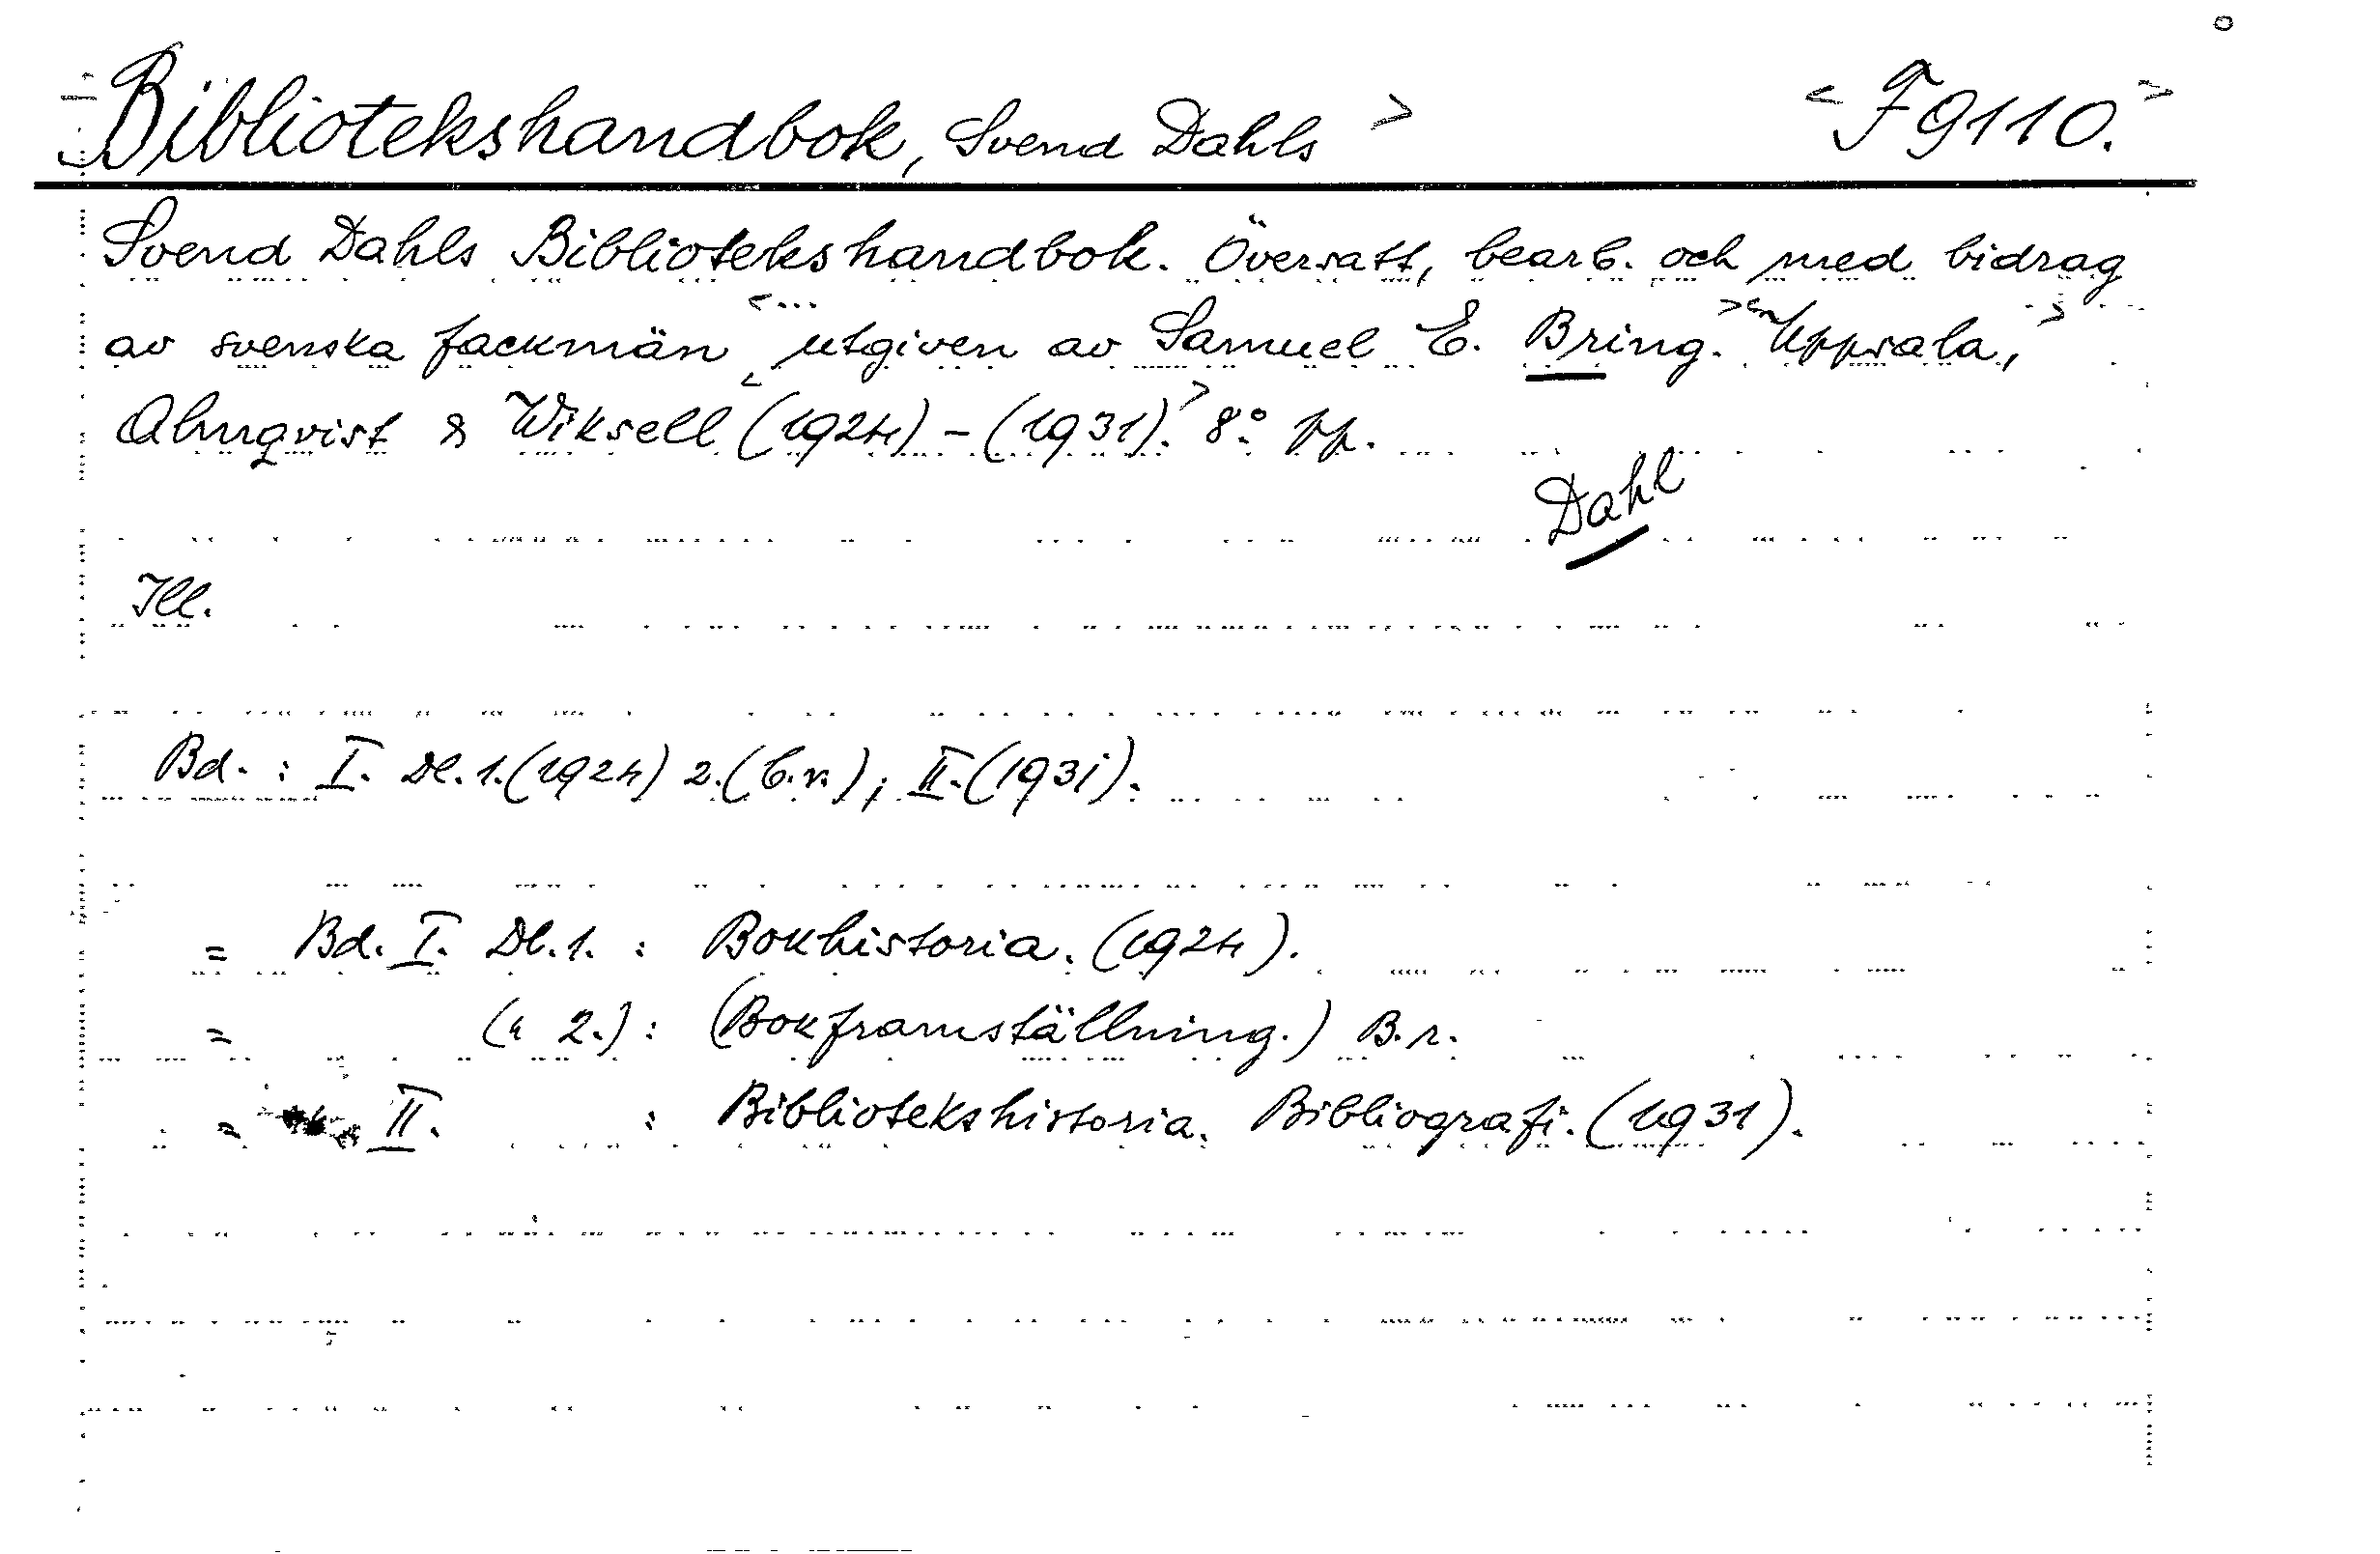 Bibliotekshandbok, Svend Dahls > < F 9110. >
Svend Dahls Bibliotekshandbok. Översatt, bearb. och med bidrag
av svenska fackmän <... utgiven av Samuel E. Bring. > < Uppsala, >
Almqvist & Wiksell < (1924) - (1931). > 8:o pp.
Dahl
Ill.
Bd. : I. Dl. 1. (1924) 2. (b.r.); II. (1931).
= Bd. I. Dl. 1. : Bokhistoria. (1924).
= (" 2.) : (Bokframställning.) B.r.
= II. : Bibliotekshistoria. Bibliografi. (1931).